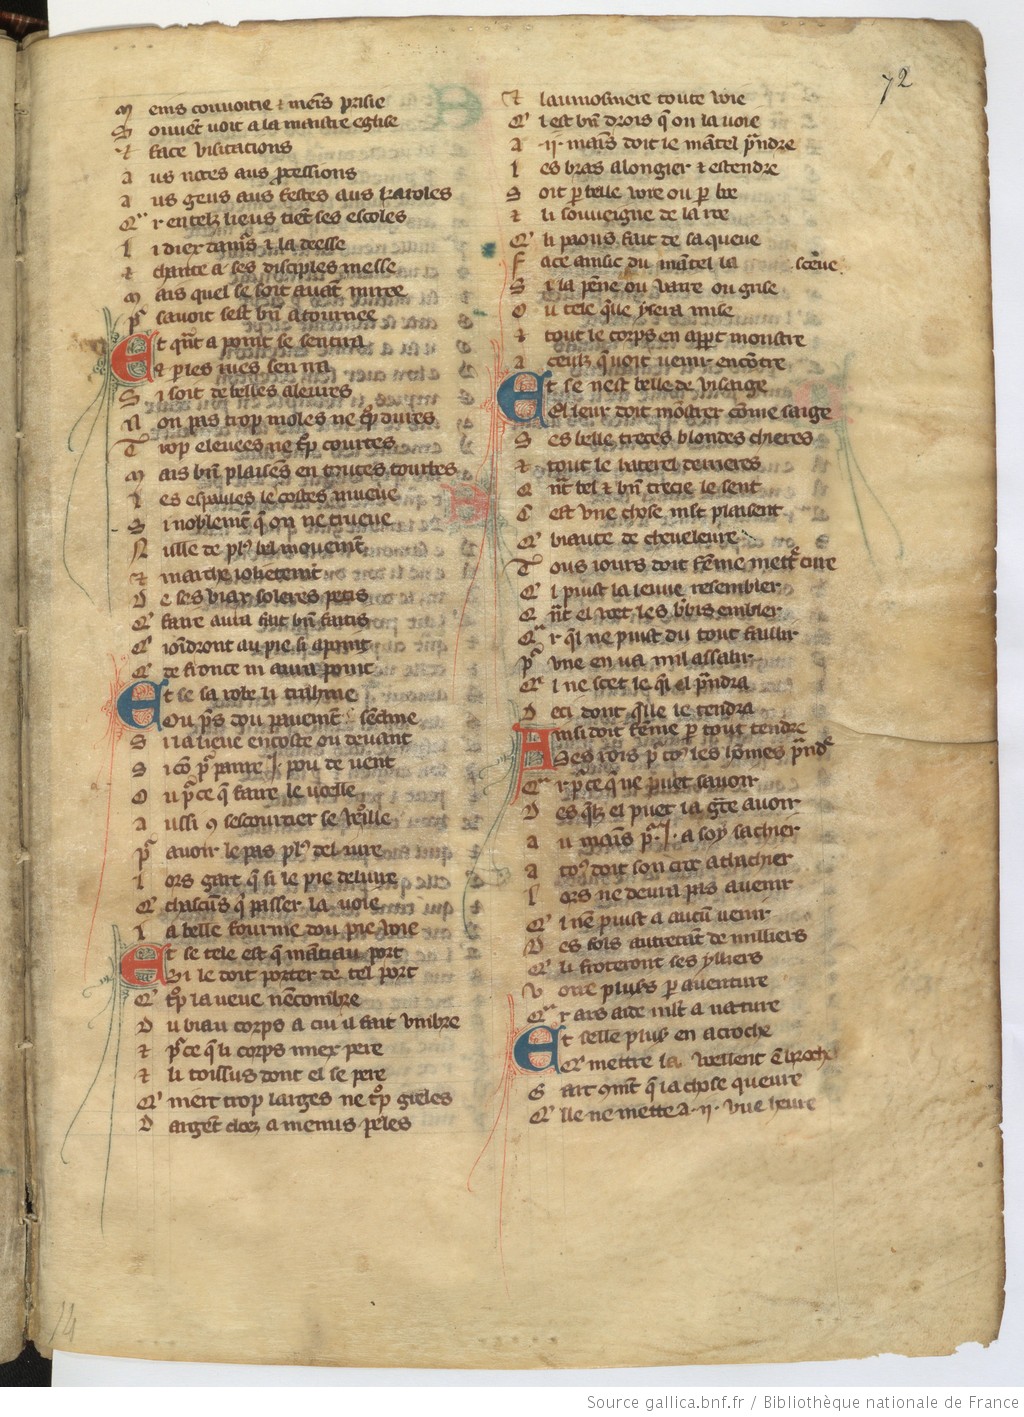 72
M eins couuoitie ⁊ mains prisie
S ouuent voit a la maistre eglise
⁊ face visitacions
A us noces aus processions
A us geus aus festes aus karoles
Q' r en telz lieus tient ses escoles
L i diex damours ⁊ la deesse
⁊ chante a ses disciples messe
M ais quel se soit auant miree
P' sauoir sest bn̄ atournee
Et qn̄t a point se sentira
Et p les rues sen ira
S i soit de belles aleures
N on pas trop moles ne tp̄ dures
T rop eleuees ne tp̄ courtes
M ais bn̄ plaisans en toutes tourbes
L es espaules les costes mueue
S i noblement q̄ on ne trueue
N ulle de pl' bel mouuement
⁊ marche joliement
D e ses biax soleres petis
Q' faire aura fait bn̄ faitis
Q' joindront au pie si a point
Q' de fronce ni aura point
Et se sa robe li trahine
Ou pres dou pauement sencline
S i la lieue encoste ou deuant
S i com p' panre .I. pou de vent
O u p'ce q̄ faire le vuelle
A ussi 9 sescourcier se vueille
P' auoir le pas pl' deliure
L ors gart q̄ si le pie deliure
Q' chascuns q̄ passer la voie
L a belle fourme dou pie voie
Et se tele est q̄ mantiau port
Si le doit porter de tel port
Q' tp̄ la veue nencombre
D u biau corps a cui il fait vmbre
⁊ p'ce q̄ li corps miex pere
⁊ li toissus dont el se pere
Q' niert trop larges ne tp̄ greles
D argent dorez a menus perles
⁊ laumosniere toute voie
Q' i est bn̄ drois q̄ on la voie
A .ii. mains doit le mantel prendre
L es bras alongier ⁊ estendre
S oit p belle voie ou p boe
⁊ li souueigne de la roe
Q' li paons fait de sa queue
F ace ainsic du mantel la sceue
S i la penne ou vaire ou grise
O u tele q̄le ysera mise
⁊ tout le corps en appert monstre
A ceulz q̄ voit venir encontre
Et se nest belle de visaige
El leur doit monstrer comme saige
S es belle treces blondes chieres
⁊ tout le haterel derrieres
Q n̄t bel ⁊ bn̄ trecie le sent
C est vne chose mlt plaisent
Q' biaute de cheueleure
T ous iours doit fēme mettre cure
Q' i puist la leuue resembler
Q n̄t el vet les brebis embler
Q' r q̄l ne puist du tout faillir
P' vne en va mil assalir
Q' i ne scet le q̄l el prendra
D eci dont q̄le le tendra
Ainsi doit fēme p tout tendre
Ses rois p' to' les homes prendre
Q' r p'ce q̄ ne puet sauoir
D es q̄lz el puet la grace auoir
A u mains p' .I. a soy sachier
A to' doit son croc atachier
L ors ne deura pas auenir
Q' i nen puist a aucun venir
D es fols autretant de milliers
Q' li froteront ses ylliers
V oire pluseurs p auenture
Q' r ars aide mlt a nature
Et selle pluseurs en acroche
Q' mettre la vuellent en broche
G art 9ment q̄ la chose queure
Q' lle ne mette a .ii. vne heure
14
Source gallica.bnf.fr / Bibliothèque nationale de France